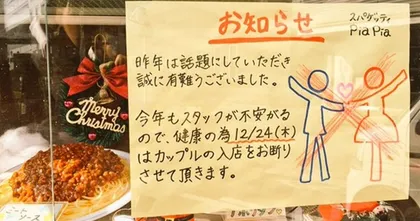 お知らせ
スパゲッティ
PiaPia
昨年は話題にしていただき
誠に有難うございました。
今年もスタッフが不安がる
ので、健康の為12/24(木)
はカップルの入店をお断り
させて頂きます。
Merry
Christmas
ミート
ソース